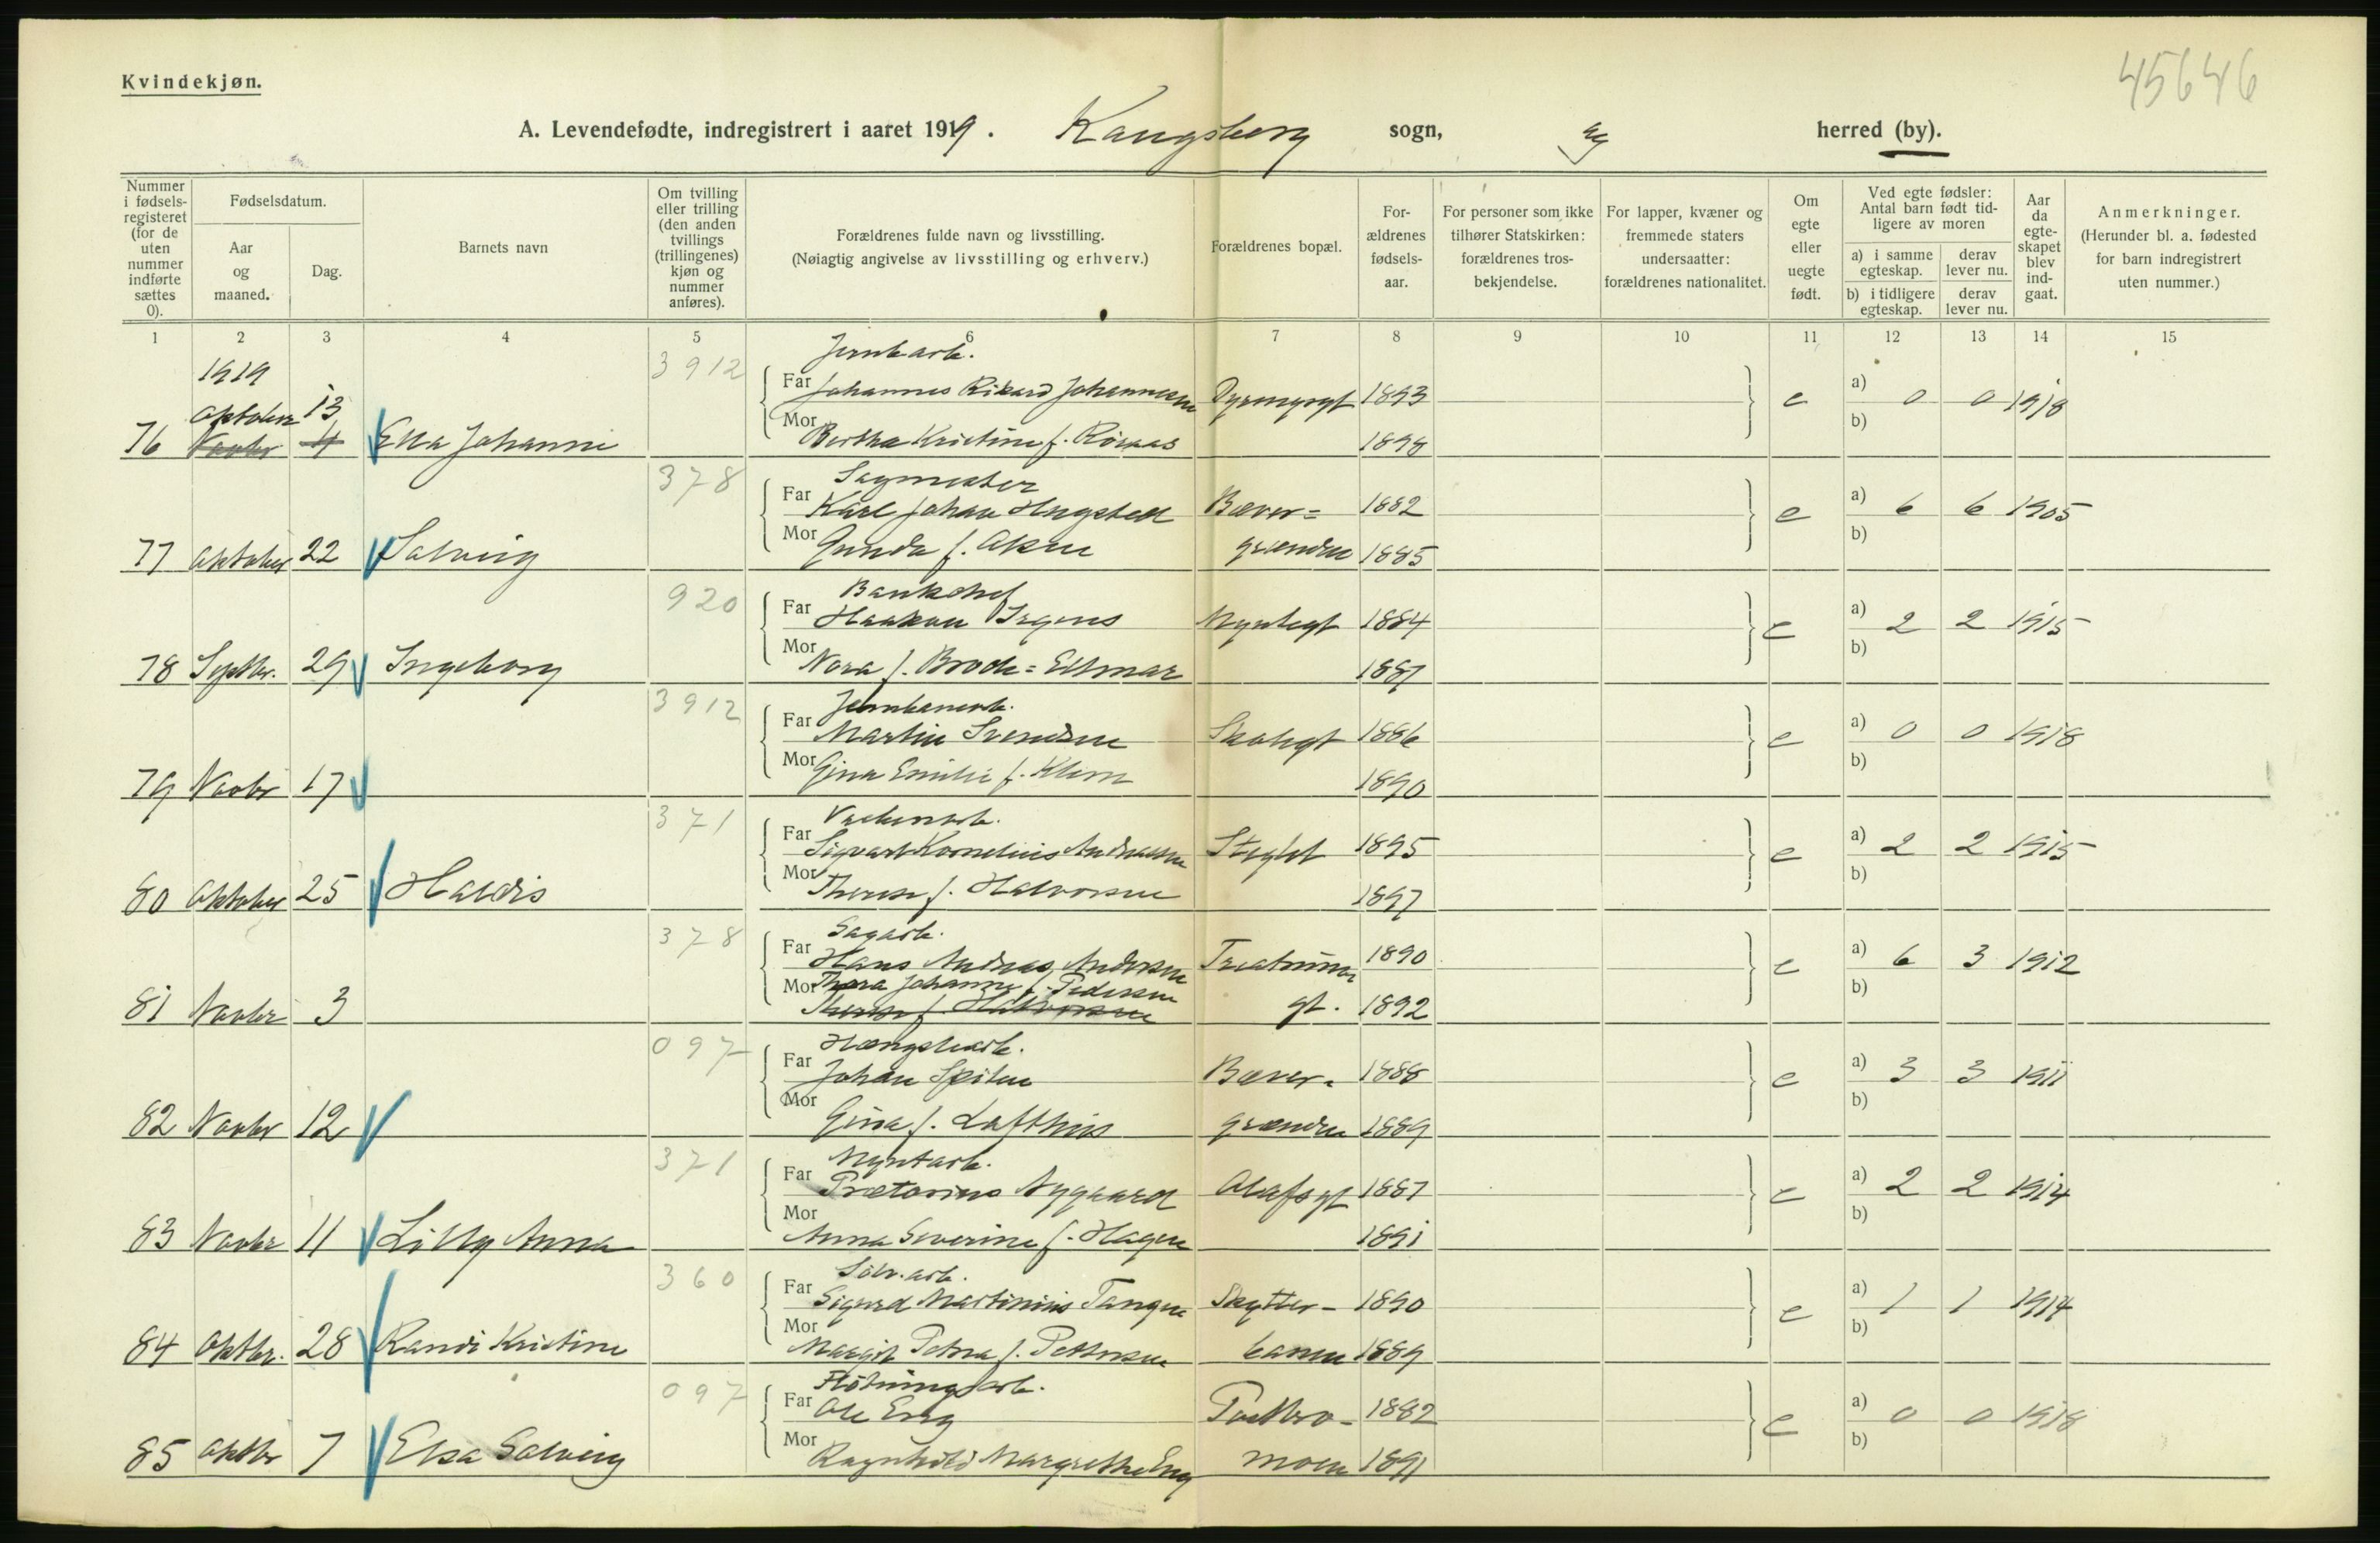 45646
Kvindekjøn.
A. Levendefødte, indregistrert i aaret 1919. Kongsberg sogn, herred (by).
Nummer i fødsels-registeret (for de uten nummer indførte sættes 0).
Fødselsdatum.
Aar og maaned.
Dag.
Barnets navn
Om tvilling eller trilling (den anden tvillings (trillingenes) kjøn og nummer anføres).
Forældrenes fulde navn og livsstilling.
(Nøiagtig angivelse av livsstilling og erhverv.)
Forældrenes bopæl.
For-ældrenes fødsels-aar.
For personer som ikke tilhører Statskirken: forældrenes tros-bekjendelse.
For lapper, kvæner og fremmede staters undersaatter: forældrenes nationalitet.
Om egte eller uegte født.
Ved egte fødsler: Antal barn født tid-ligere av moren
a) i samme egteskap. derav lever nu.
b) i tidligere egteskap. derav lever nu.
Aar da egte-skapet blev ind-gaat.
Anmerkninger.
(Herunder bl. a. fødested for barn indregistrert uten nummer.)
1 2 3 4 5 6 7 8 9 10 11 12 13 14 15
1919 3912 Jernbarb.
Oktober 13 Far Johannes Rikard Johannesen 1893 e a) 0 0 1918
76 Novbr 4 Ella Johanne Mor Bertha Kristine f. 1898 b)
378 Sagmester
Far Karl Johan Hugsted Bæver= 1882 e a) 6 6 1905
77 Oktober 22 Solveig Mor Gunda f. Olsen grænden 1885 b)
920 Bankchef
Far Haakon Irgens Myntegt 1884 e a) 2 2 1915
78 Septbr. 29 Ingeborg Mor Nora f. Brock= Eltmar 1887 b)
3912 Jernbanearb.
Far Martin Svendsen Skolegt 1886 e a) 0 0 1918
79 Novbr 17 Mor Gina Emilie f. Klem 1890 b)
371
Far Sigvart Kornelius Andreassen 1895 e a) 2 2 1915
80 Oktober 25 Haldis Mor Therese f. Halvorsen 1897 b)
378 Sagarb.
Far Hans Andreas Andersen 1890 e a) 6 3 1912
Mor Thora Johanne f. Pedersen b)
81 Novbr 3 Therese f. Halvorsen gt. 1892
097
Far Johan Spiten Bæver- 1888 e a) 3 3 1911
82 Novbr 12 Mor Gina f. Lofthus grænden 1889 b)
371 Myntarb.
Far Prætorius Nygaard Olafsgt 1887 e a) 2 2 1914
83 Novbr 11 Lilly Anna Mor Anna Severine f. Hagen 1891 b)
360 Sølv.arb.
Far Sigurd Martinius Tangen Skytter- 1890 e a) 1 1 1914
84 Oktbr. 28 Randi Kristine Mor Margit Petra f. Pettersen banen 1889 b)
097 Fløtningsarb.
Far Ole Eng 1882 e a) 0 0 1918
85 Oktbr 7 Elsa Solveig Mor Ragnhild Margrethe Eng moen 1891 b)